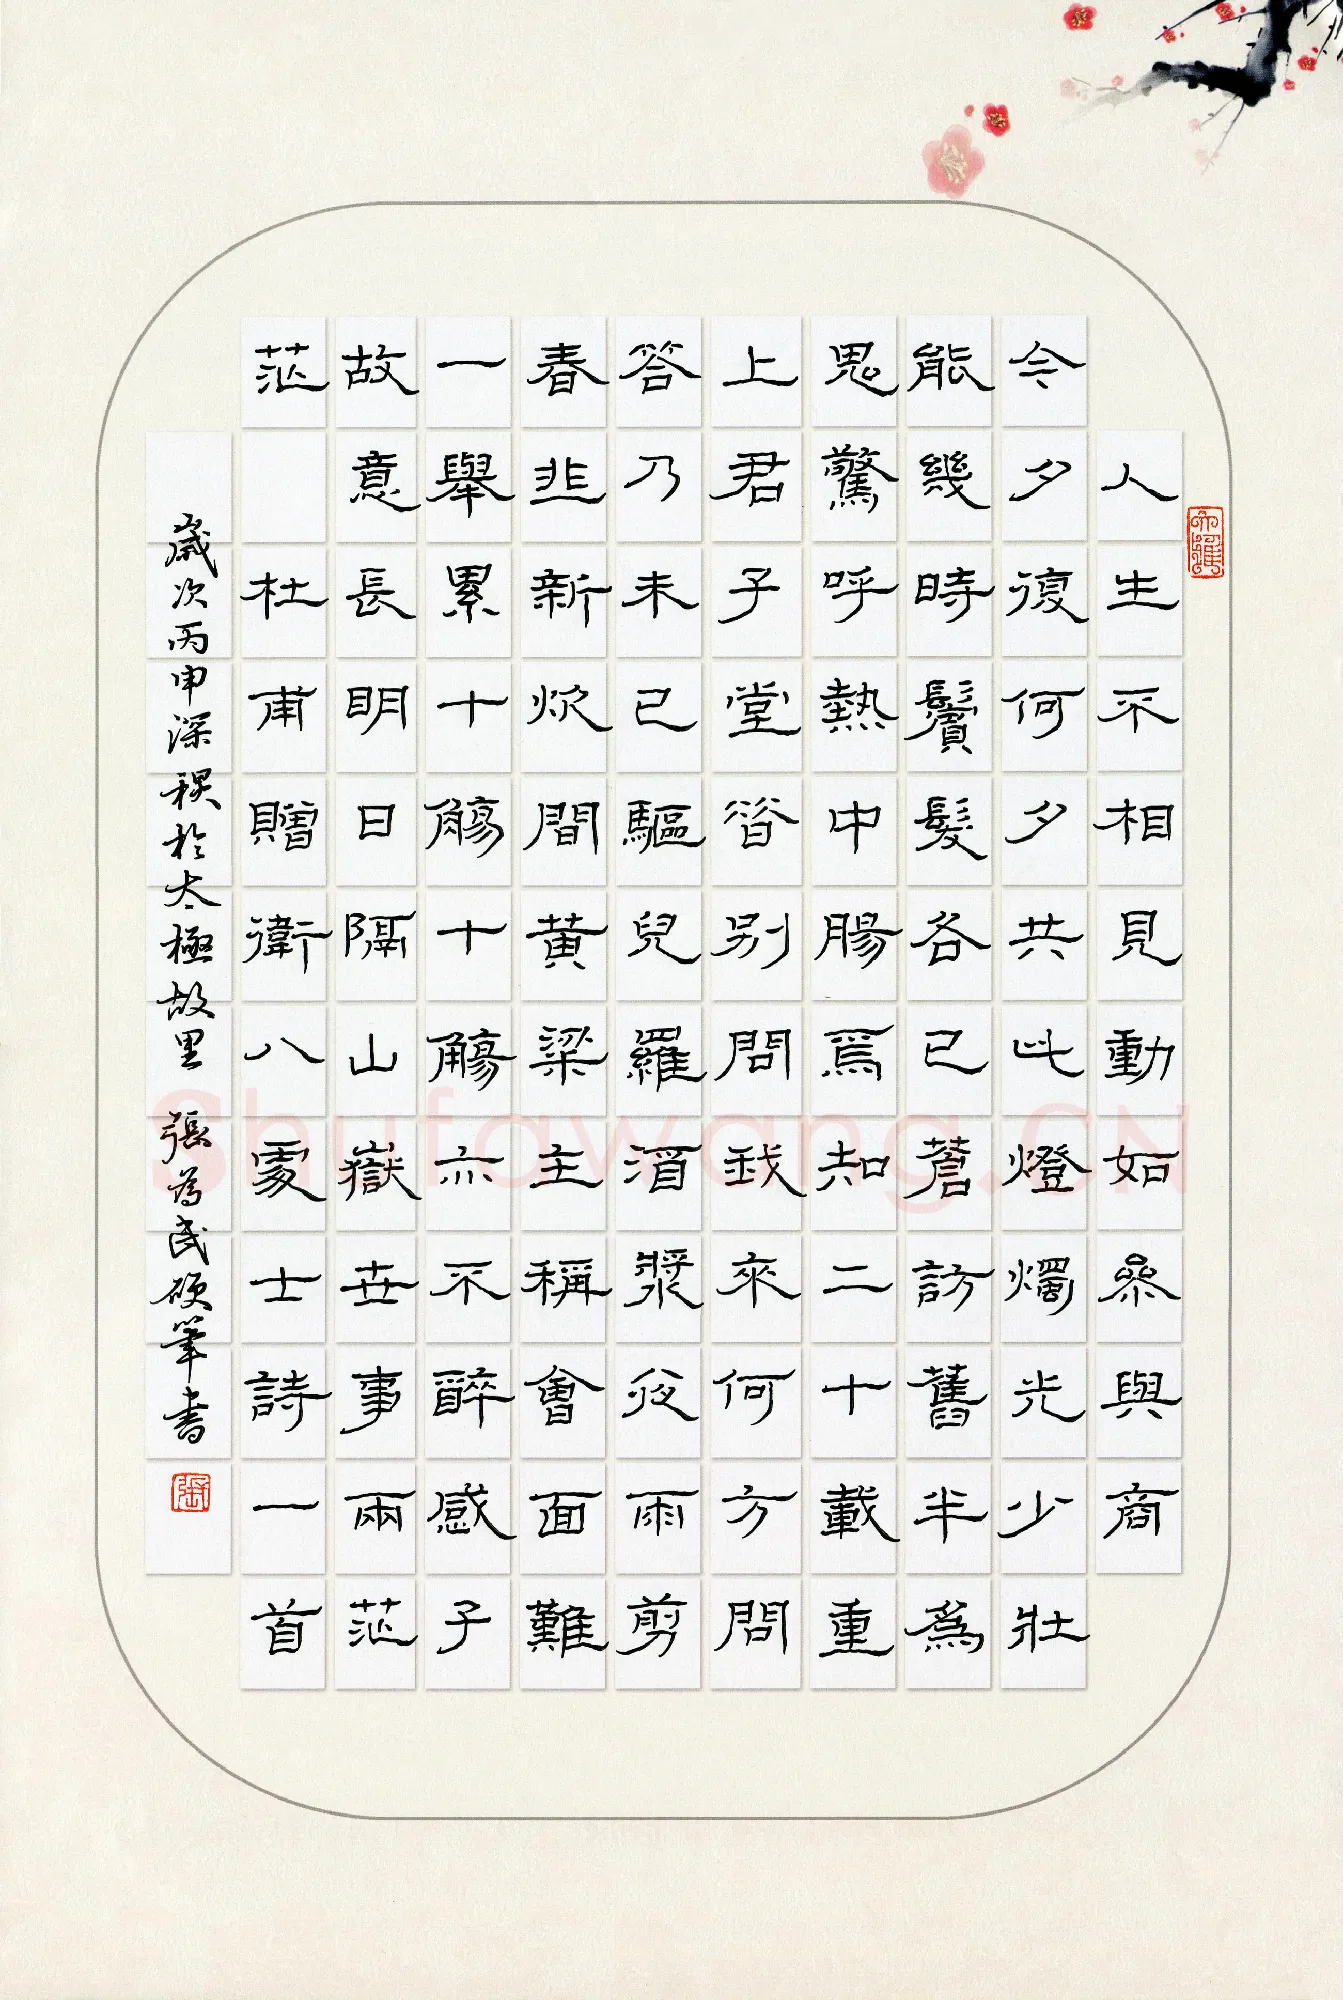 人生不相見動如參與商
今夕復何夕共此燈燭光少壯
能幾時鬢髮各已蒼訪舊半為
鬼驚呼熱中腸焉知二十載重
上君子堂昔別問我來何方問
答乃未已驅兒羅酒漿夜雨剪
春韭新炊間黃梁主稱會面難
一舉累十觴十觴亦不醉感子
故意長明日隔山嶽世事兩茫
茫 杜甫贈衛八處士詩一首
歲次丙申深秋於太極故里 張為民硬筆書
Shufawang.CN